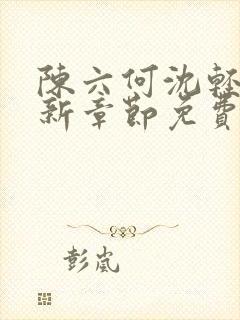 陳六何沈輕
新章節免費
彭嵐